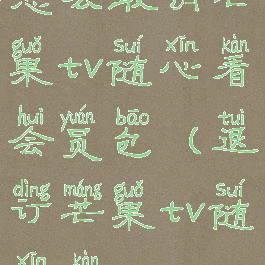 guǒ suí xīn kàn
果tv随心看
huì yuán bāo tuì
会员包（退
dìng máng guǒ suí
订芒果tv随
xīn kàn